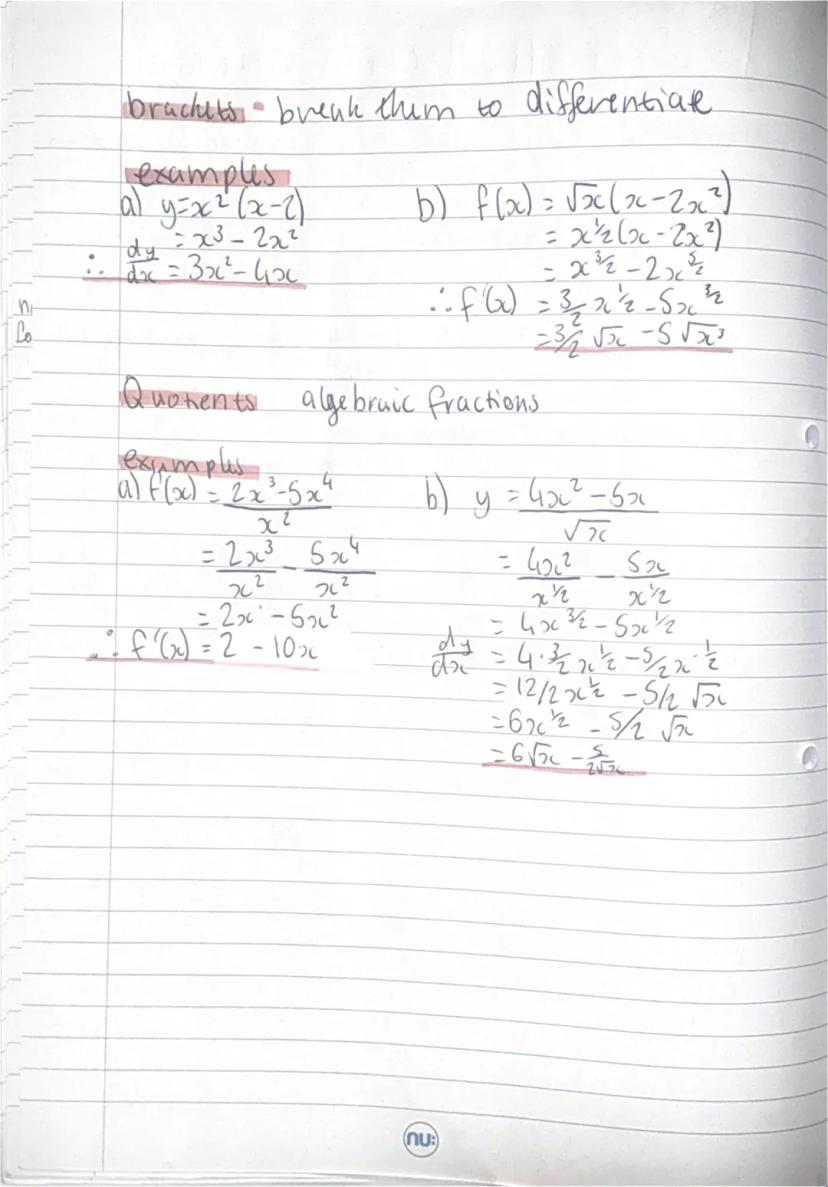 brackets - break them to differentiate
examples
a) y=x²(x-2)
= x³ - 2x²
∴ dy/dx = 3x² - 4x
b) f(x) = √x(x - 2x²)
= x^½(x - 2x²)
= x^3/2 - 2x^5/2
∴ f'(x) = 3/2 x^½ - 5x^3/2
= 3/2 √x - 5√x³
Quotients algebraic fractions
examples
a) f(x) = (2x³ - 5x⁴)/x²
= 2x³/x² - 5x⁴/x²
= 2x - 5x²
∴ f'(x) = 2 - 10x
b) y = (4x² - 5x)/√x
= 4x²/x^½ - 5x/x^½
= 4x^3/2 - 5x^1/2
dy/dx = 4·3/2 x^½ - 5/2 x^-½
= 12/2 x^½ - 5/2 √x
= 6x^½ - 5/2 √x
= 6√x - 5/2√x
n
Co
nu: